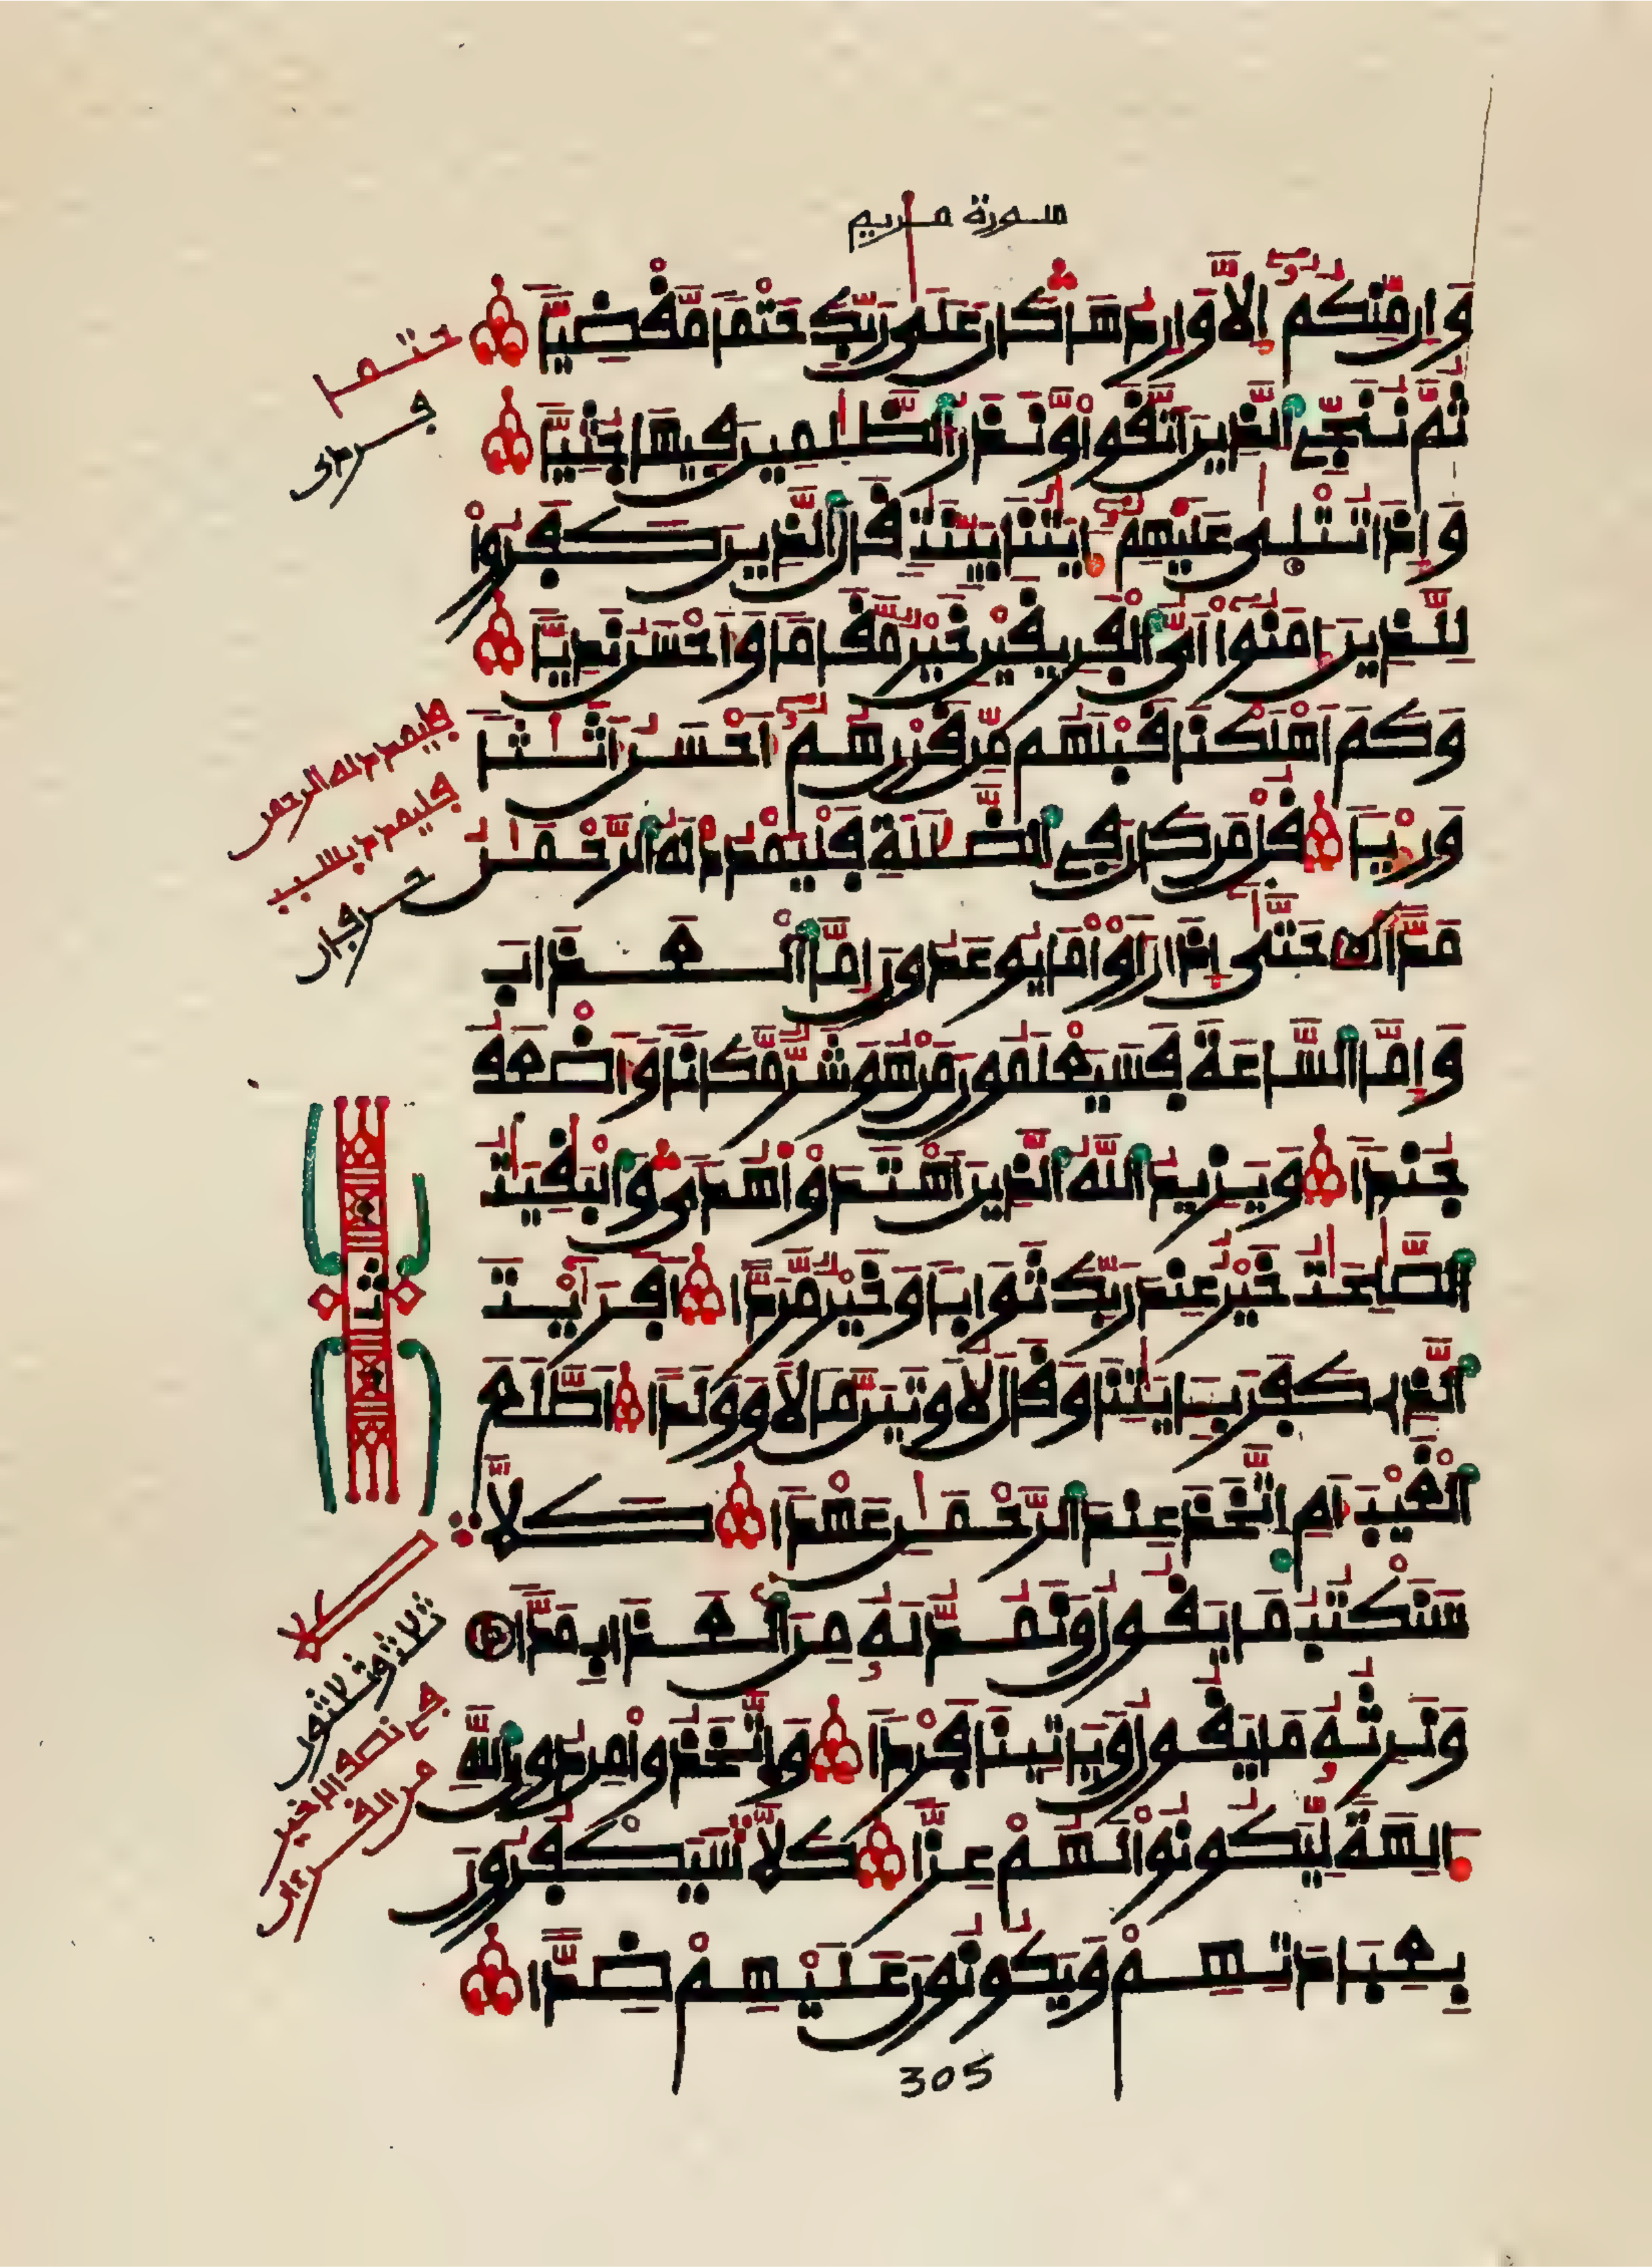 سورة مريم
وَإِن مِّنكُمُۥٓ إِلَّا وَارِدُهَا كَانَ عَلَىٰ رَبِّكَ حَتْمًا مَّقْضِيًّا
ثُمَّ نُنَجِّي ٱلَّذِينَ ٱتَّقَواْ وَّنَذَرُ ٱلظَّٰلِمِينَ فِيهَا جُثِيًّا
وَإِذَا تُتْلَىٰ عَلَيْهِمُۥٓ ءَايَٰتُنَا بَيِّنَٰتٍ قَالَ ٱلَّذِينَ كَفَرُواْ
لِلَّذِينَ ءَامَنُواْ أَيُّ ٱلْفَرِيقَيْنِ خَيْرٌ مَّقَامًا وَأَحْسَنُ نَدِيًّا
وَكَمَ اَهْلَكْنَا قَبْلَهُم مِّن قَرْنٍ هُمُۥٓ أَحْسَنُ أَثَٰثًا
وَرِءْيًا قُلْ مَن كَانَ فِي ٱلضَّلَٰلَةِ فَلْيَمْدُدْ لَهُ ٱلرَّحْمَٰنُ
مَدًّا حَتَّىٰٓ إِذَا رَأَوْاْ مَا يُوعَدُونَ إِمَّا ٱلْعَذَابَ
وَإِمَّا ٱلسَّاعَةَ فَسَيَعْلَمُونَ مَنْ هُوَ شَرٌّ مَّكَانًا وَأَضْعَفُ
جُندًا وَيَزِيدُ ٱللَّهُ ٱلَّذِينَ ٱهْتَدَوْاْ هُدًى وَٱلْبَٰقِيَٰتُ
ٱلصَّٰلِحَٰتُ خَيْرٌ عِندَ رَبِّكَ ثَوَابًا وَخَيْرٌ مَّرَدًّا أَفَرَٰيْتَ
ٱلَّذِي كَفَرَ بِـَٔايَٰتِنَا وَقَالَ لَأُوتَيَنَّ مَالًا وَوَلَدًا أَطَّلَعَ
ٱلْغَيْبَ أَمِ ٱتَّخَذَ عِندَ ٱلرَّحْمَٰنِ عَهْدًا كَلَّا
سَنَكْتُبُ مَا يَقُولُ وَنَمُدُّ لَهُۥ مِنَ ٱلْعَذَابِ مَدًّا
وَنَرِثُهُۥ مَا يَقُولُ وَيَاتِينَا فَرْدًا وَٱتَّخَذُواْ مِن دُونِ ٱللَّهِ
ءَالِهَةً لِّيَكُونُواْ لَهُمْ عِزًّا كَلَّا سَيَكْفُرُونَ
بِعِبَادَتِهِمْ وَيَكُونُونَ عَلَيْهِمْ ضِدًّا
حتما
فليمدد له الرحمن
فليمدد بسبب
حرفان
ثمن
كلا
ثلاث وثلاثون
في نصفه الاخير
من القرءان
305